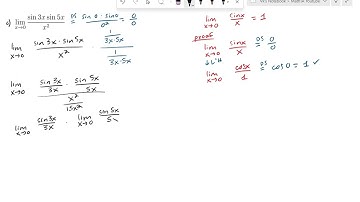 c) lim x→0 sin 3x sin 5x / x² DS = sin 0 · sin 0 / 0² = 0/0
lim x→0 sin 3x · sin 5x / x² · 1/3x·5x / 1/3x·5x
lim x→0 sin 3x / 3x · sin 5x / 5x / x² / 15x²
lim x→0 sin 3x / 3x · lim x→0 sin 5x / 5x
lim x→0 sin x / x = 1
proof
lim x→0 sin x / x DS = 0/0
↓ L'H
lim x→0 cos x / 1 DS = cos 0 = 1 ✓